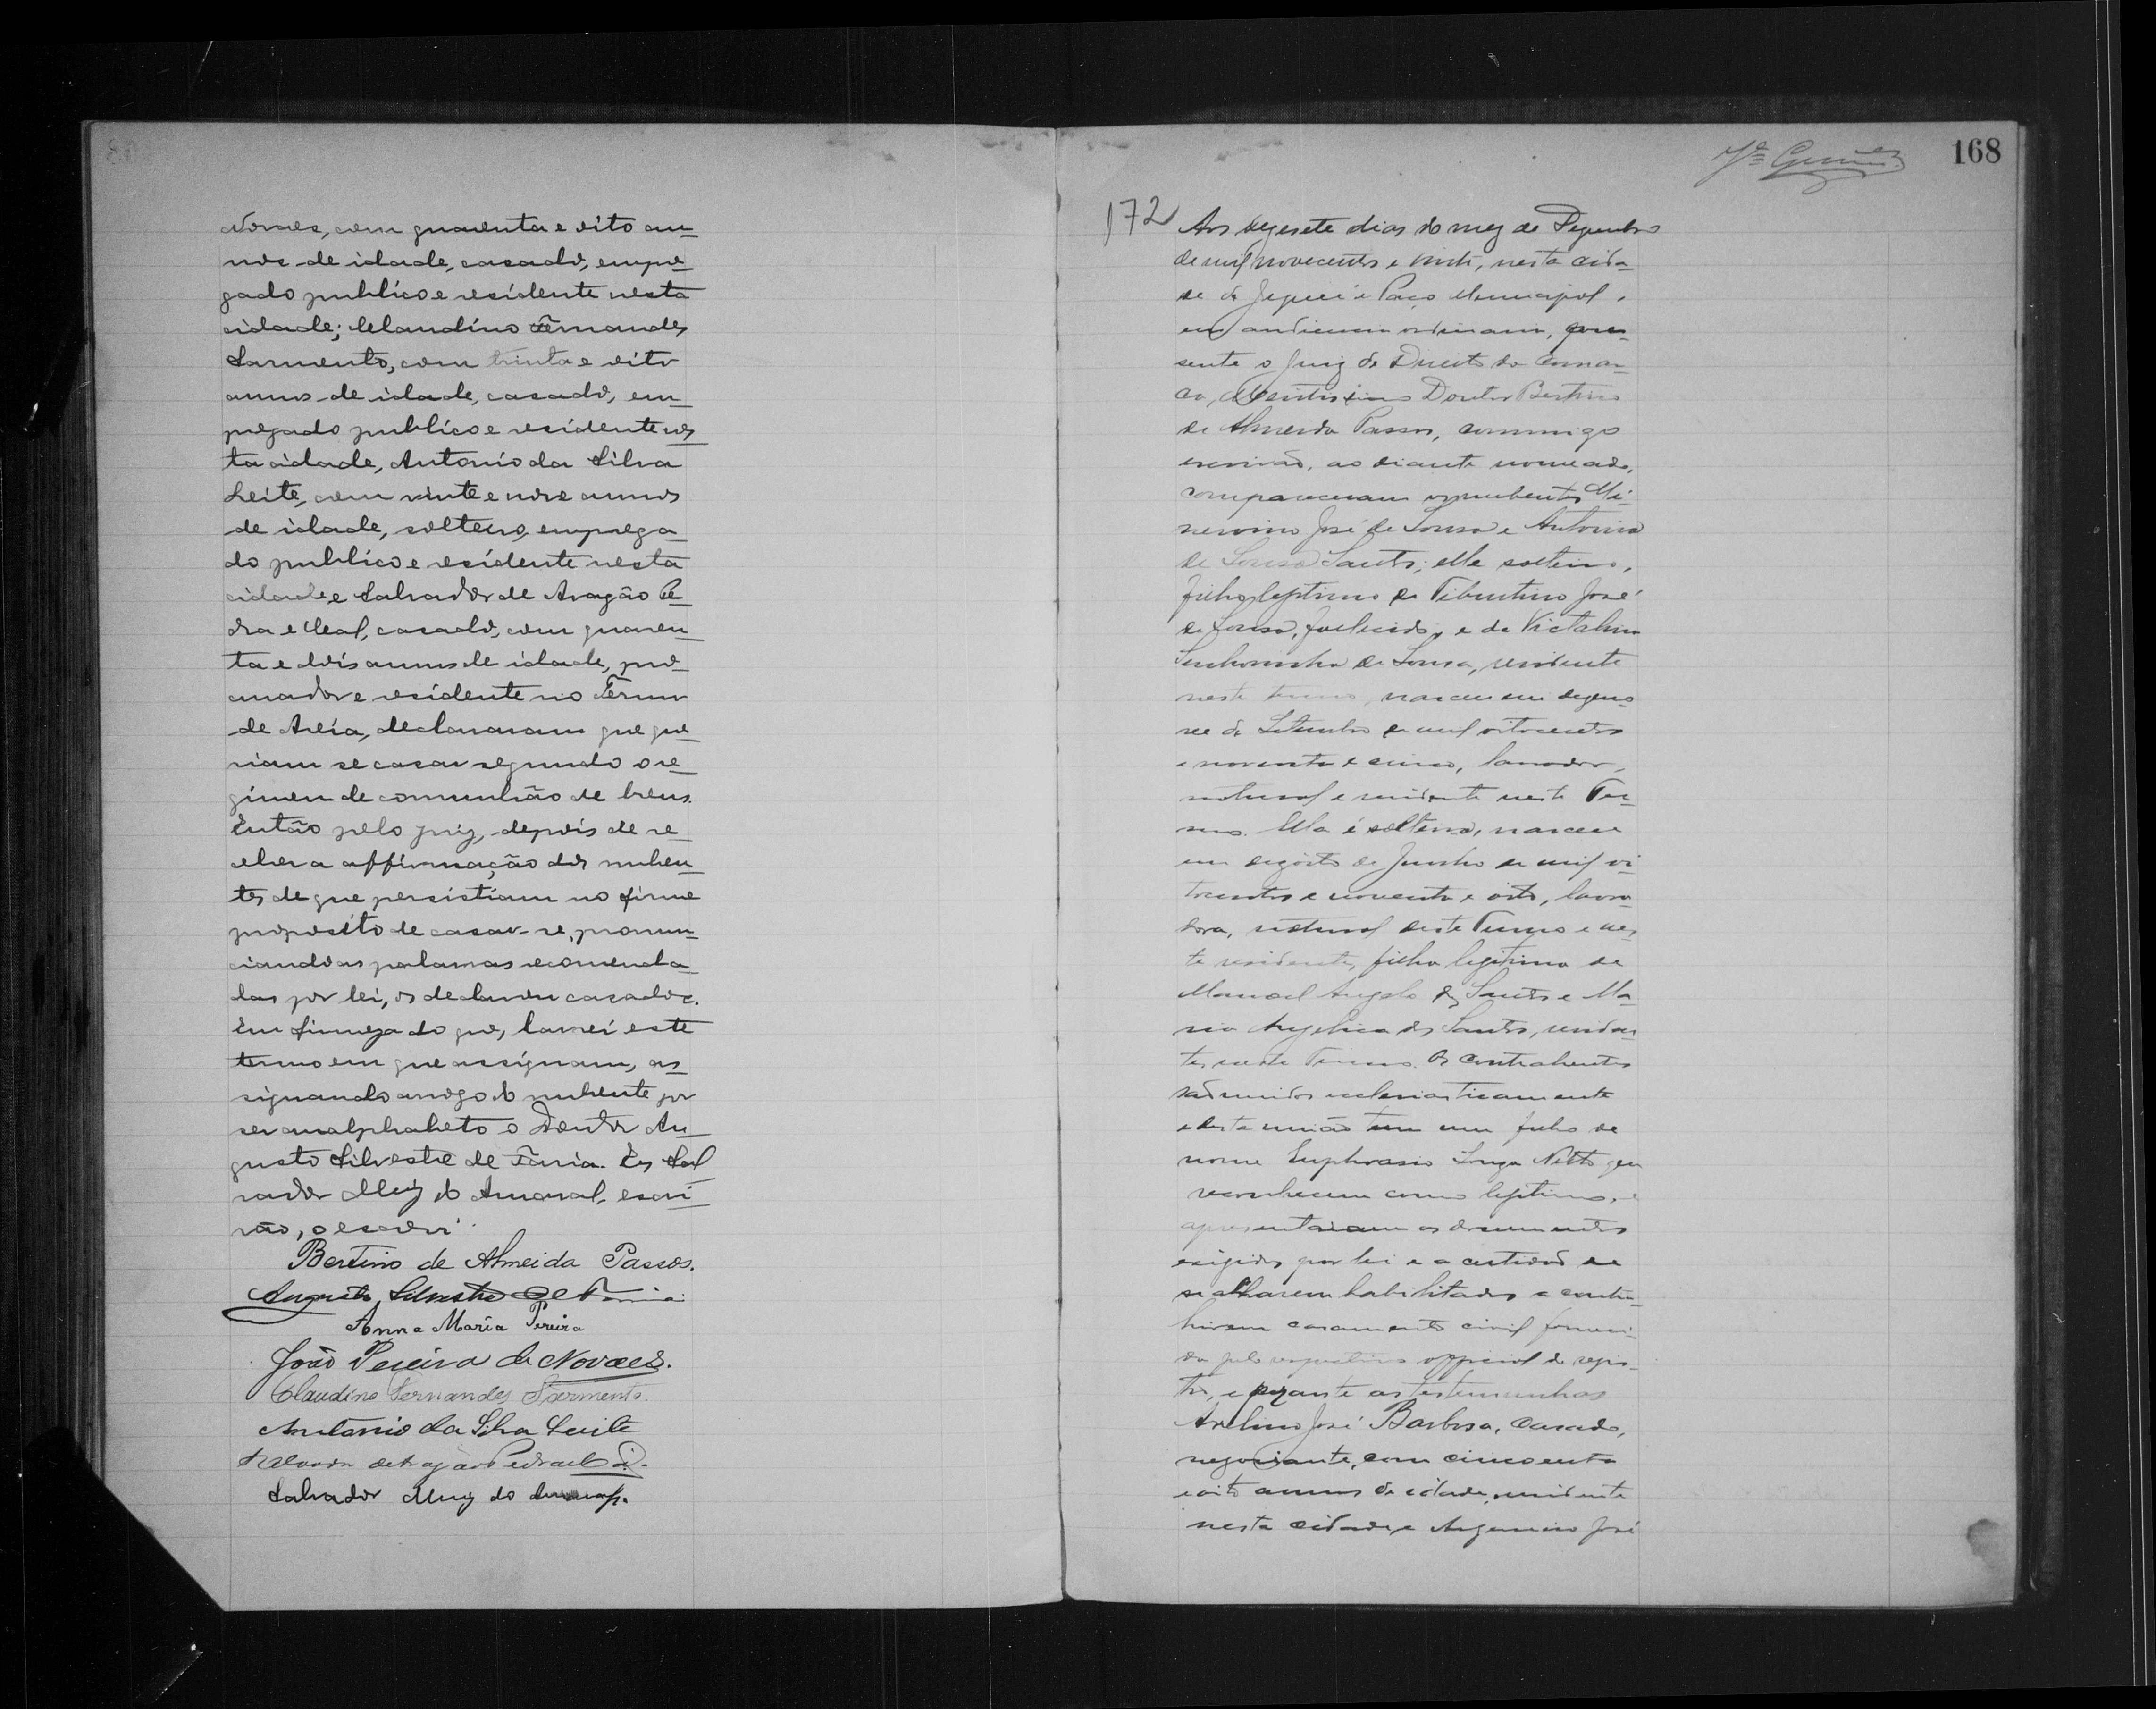 Novaes, com quarenta e oito an-
nos de idade, casado, empre-
gado publico e residente nesta
cidade; Claudino Fernandes
Sarmento, com trinta e oito
annos de idade, casado, em-
pregado publico e residente nes-
ta cidade, Antonio da Silva
Leite, com vinte e nove annos
de idade, solteiro, emprega-
do publico e residente nesta
cidade e Salvador de Aragão Pe-
dra e Cal, casado, com quaren-
ta e dois annos de idade, pro-
curador e residente no Termo
de Areia, declararam que que-
riam se casar segundo o re-
gimen de comunhão de bens.
Então pelo juiz, depois de re-
ceber a affirmação dos nuben-
tes de que persistiam no firme
proposito de casar-se, pronun-
ciando as palavras recomenda-
das por lei, os declarou casados.
Em firmeza do que, lavrei este
termo em que assignam, as-
signando a rogo do nubente por
ser analphabeto o Doutor Au-
gusto Silvestre de Faria. Eu Sal-
vador Muiz do Amaral, escri-
vão, o escrevi.
Bertino de Almeida Passos.
Augusto Silvestre de Faria
Anna Maria Pereira
João Pereira de Novaes.
Claudino Fernandes Sarmento.
Antonio da Silva Leite
Salvador de Aragão Pedra e Cal
Salvador Muiz do Amaral.
168
172
Aos dezesete dias do mez de Dezembro
de mil novecentos e vinte, nesta cida-
de de Jequié e Paço Municipal,
em audiencia ordinaria, pre-
sente o Juiz de Direito da Comar-
ca, Meritissimo Doutor Bertino
de Almeida Passos, commigo
escrivão, ao diante nomeado,
compareceram os nubentes Mi-
nervino José de Sousa e Antonia
de Sousa Santos; elle solteiro,
filho legitimo de Tiburtino José
de Sousa, fallecido, e de Victalina
Senhorinha de Sousa, residente
neste termo, nasceu em dezeno-
ve de Setembro de mil oitocentos
e noventa e cinco, lavrador,
natural e residente neste Ter-
mo. Ella é solteira, nasceu
em dezoito de Junho de mil oi-
tocentos e noventa e oito, lavra-
dora, natural deste Termo e nes-
te residente, filha legitima de
Manoel Angelo dos Santos e Ma-
ria Angelica dos Santos, residen-
tes neste Termo. Os contrahentes
são unidos ecclesiasticamente
e desta união tem um filho de
nome Euphrasio Souza Netto que
reconhecem como legitimo, e
apresentaram os documentos
exigidos por lei e a certidão de
se acharem habilitados a contra-
hirem casamento civil forneci-
da pelo respectivo official do regis-
tro, e perante as testemunhas
Avelino José Barbosa, casado,
negociante, com cincoenta
e oito annos de idade, residente
nesta cidade e José